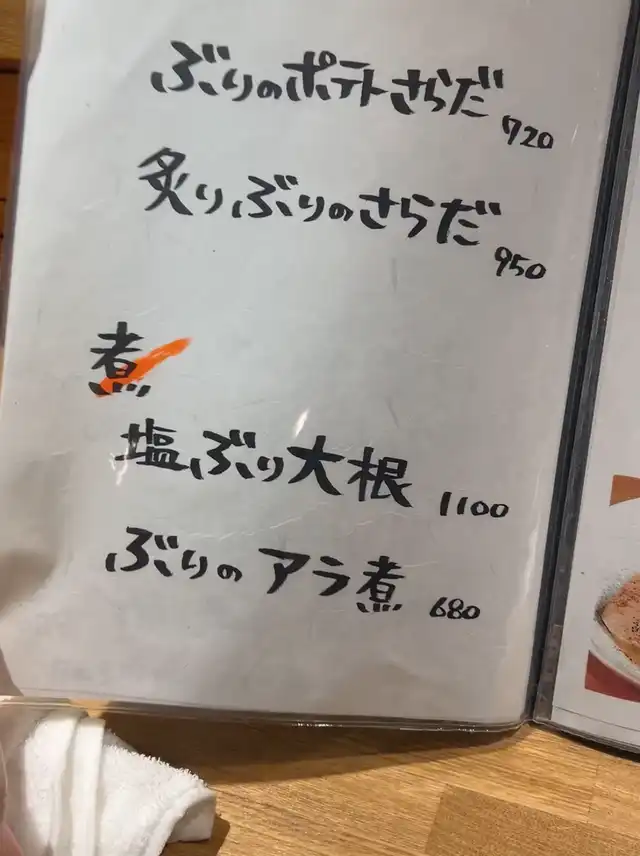 ぶりのポテトさらだ 720
炙りぶりのさらだ 950
煮
塩ぶり大根 1100
ぶりのアラ煮 680